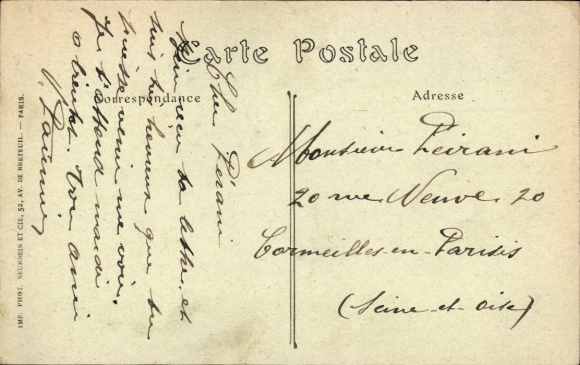 Carte Postale
Correspondance
Adresse
Cher Peirani
Bien reçu ta lettre, et
suis heureux que tu
puisse venir me voir.
Je t'attend mardi
à bientôt. Ton ami
Monsieur Peirani
20 rue Neuve 20
Cormeilles-en-Parisis
(Seine-et-Oise)
IMP. PHOT. NEURDEIN ET CIE, 52, AV. DE BRETEUIL. — PARIS.